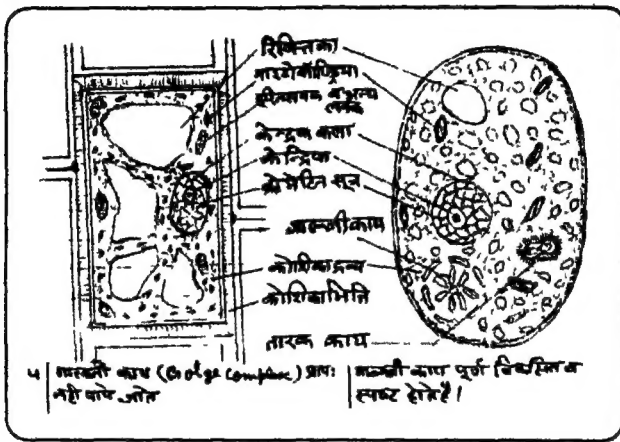 रिक्तिका
माइटोकॉण्ड्रिया
हरितलवक व अन्य
लवक
केन्द्रक कला
केन्द्रिका
क्रोमेटिन सूत्र
गाल्जीकाय
कोशिकाद्रव्य
कोशिकाभित्ति
तारक काय
4 गाल्जी काय (Golge Complex) प्रायः
नहीं पाये जाते
गाल्जी काय पूर्ण विकसित व
स्पष्ट होते है।